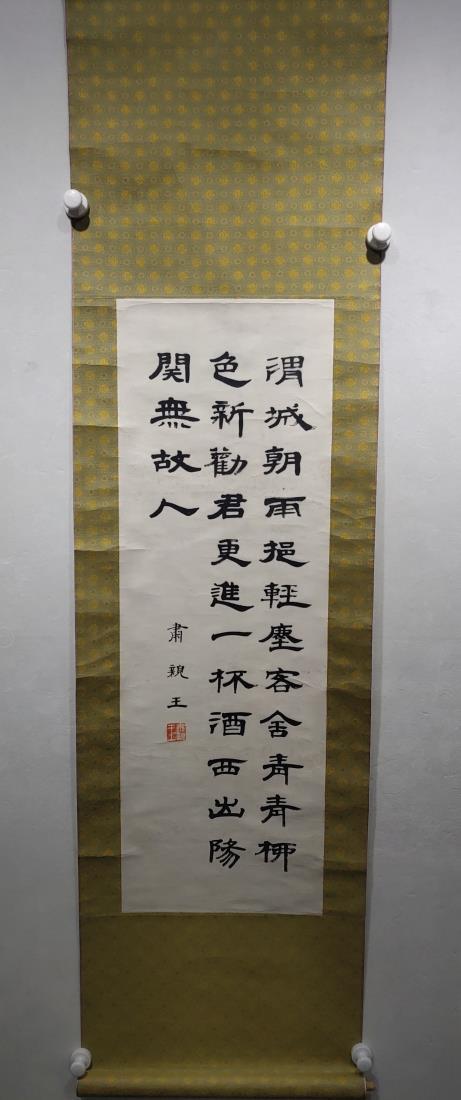 渭城朝雨挹輕塵客舍青青柳
色新勸君更進一杯酒西出陽
関無故人
肅親王